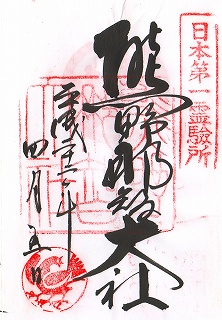 日本第一霊験所
熊野那智大社
平成二十二年
四月五日